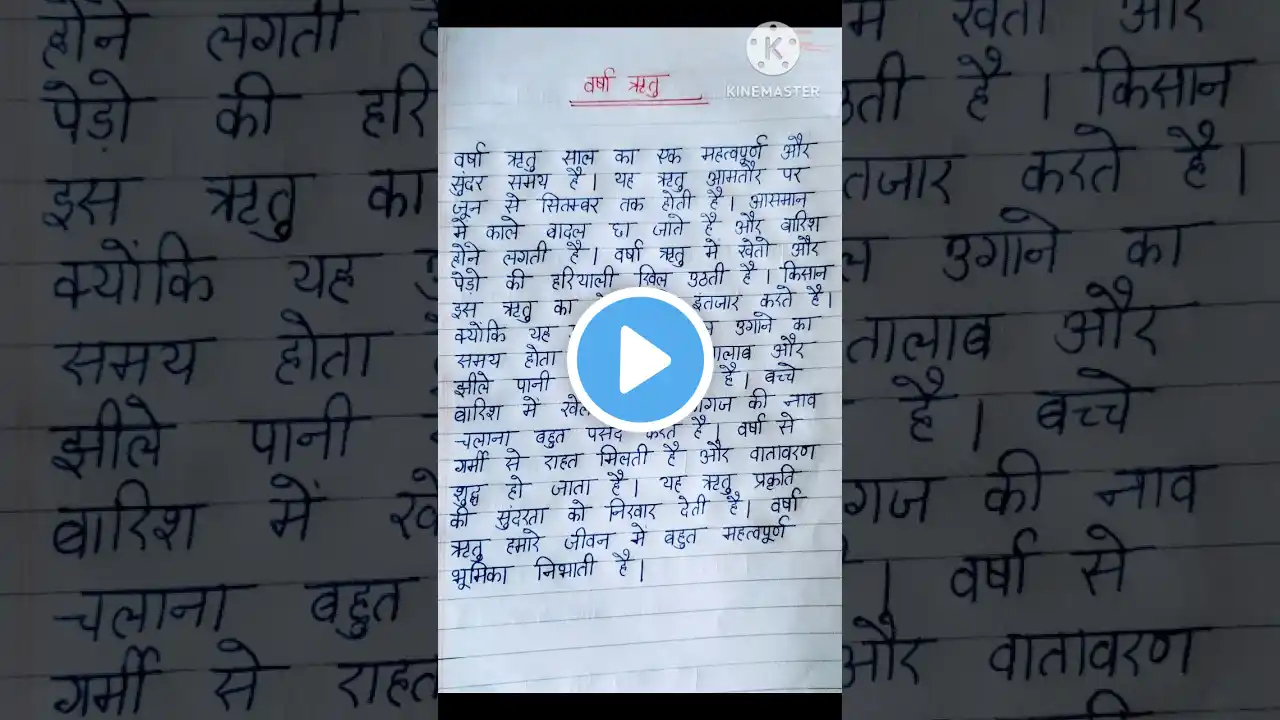 KINEMASTER
वर्षा ऋतु
वर्षा ऋतु साल का एक महत्वपूर्ण और
सुंदर समय है। यह ऋतु आमतौर पर
जून से सितम्बर तक होती है। आसमान
में काले बादल छा जाते है और बारिश
होने लगती है। वर्षा ऋतु में खेतो और
पेड़ो की हरियाली खिल उठती है। किसान
इस ऋतु का इंतजार करते है।
क्योंकि यह उगाने का
समय होता तालाब और
झीले पानी है। बच्चे
बारिश में कागज की नाव
चलाना बहुत पसंद करते है। वर्षा से
गर्मी से राहत मिलती है और वातावरण
शुद्ध हो जाता है। यह ऋतु प्रकृति
की सुंदरता को निखार देती है। वर्षा
ऋतु हमारे जीवन में बहुत महत्वपूर्ण
भूमिका निभाती है।